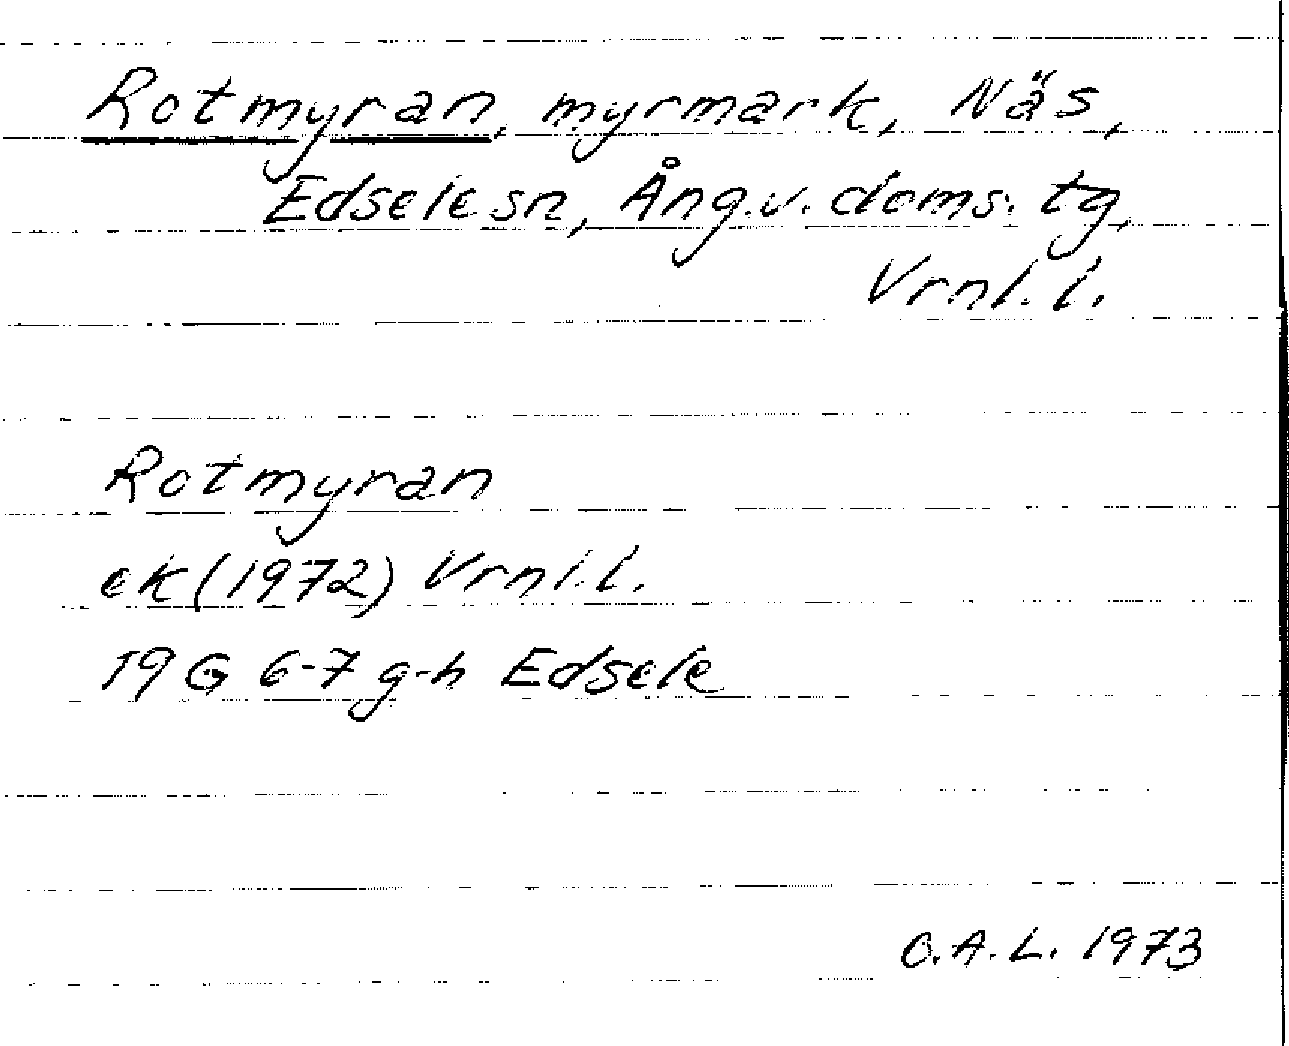 Rotmyran, myrmark, Näs,
Edsele sn, Ång.v. doms. tg,
Vrnl. l.
Rotmyran
ek (1972) Vrnl. l.
19 G 6-7 g-h Edsele
O.A.L. 1973